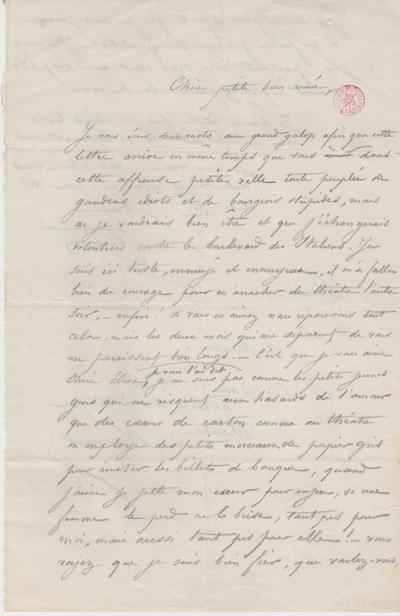 Chère petite bien-aimée,
Je vous écris deux mots au grand galop afin que cette
lettre arrive en même temps que vous dans
cette affreuse petite ville toute peuplée de
gandins idiots et de bourgeois stupides, mais
où je voudrais bien être et que j'échangerais
volontiers contre le boulevard des Italiens. Je
suis ici triste, ennuyé et ennuyeux, il m'a fallu
bien du courage pour m'arracher du théâtre l'autre
soir, – enfin! si vous m'aimez nous reparerons tout
cela, mais les deux mois qui me séparent de vous
me paraissent bien longs. – C'est que je vous aime
chère Elisa, je vous l'ai dit, je ne suis pas comme les petits jeunes
gens qui ne risquent aux hasards de l'amour
que des cœurs de carton comme au théâtre
on employe des petits morceaux de papier gris
pour imiter les billets de banque, quand
j'aime je jette mon cœur pour enjeu, si une
femme le perd ou le brise, tant pis pour
moi, mais aussi tant pis pour elle! – vous
voyez que je suis bien fier, que voulez-vous,